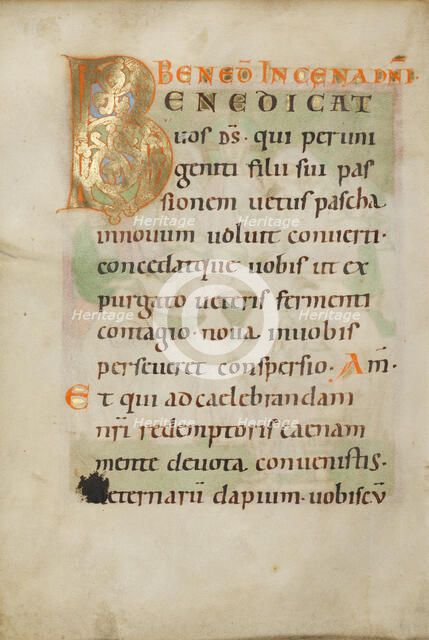 BENED̄ IN CENA DN̄I
BENEDICAT
uos DS̄· qui per uni
geniti filii sui pas
sionem uetus pascha
innouum uoluit conuerti·
concedatque uobis ut ex
purgato ueteris fermenti
contagio· noua inuobis
perseueret conspersio. Am̄·
Et qui ad caelebrandam
nr̄i redemptoris caenam
mente deuota conuenistis·
aeternarū dapium· uobiscū
Heritage
Heritage
Heritage
Heritage
Heritage
Heritage
Heritage
Heritage